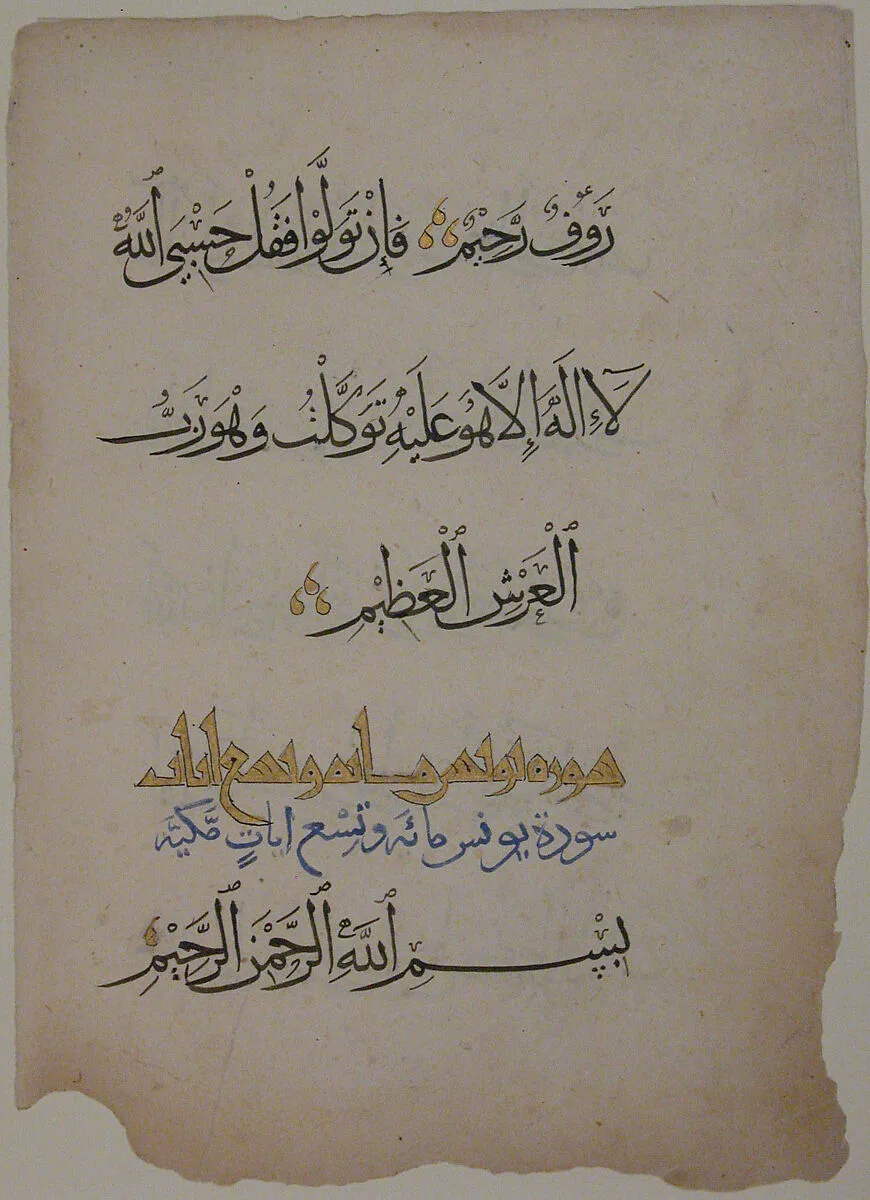 رَوُفٌ رَّحِيْمٌ فَإِنْ تَوَلَّوْا فَقُلْ حَسْبِيَ ٱللَّهُ
لَآ إِلَهَ إِلَّا هُوَ عَلَيْهِ تَوَكَّلْتُ وَهْوَ رَبُّ
ٱلْعَرْشِ ٱلْعَظِيْمِ
سوره يونس مايه وتسع ايات
سورة يونس مائه وتسْع اياتٍ مَّكيَّه
بِسْمِ ٱللَّهِ ٱلرَّحْمَنِ ٱلرَّحِيْمِ